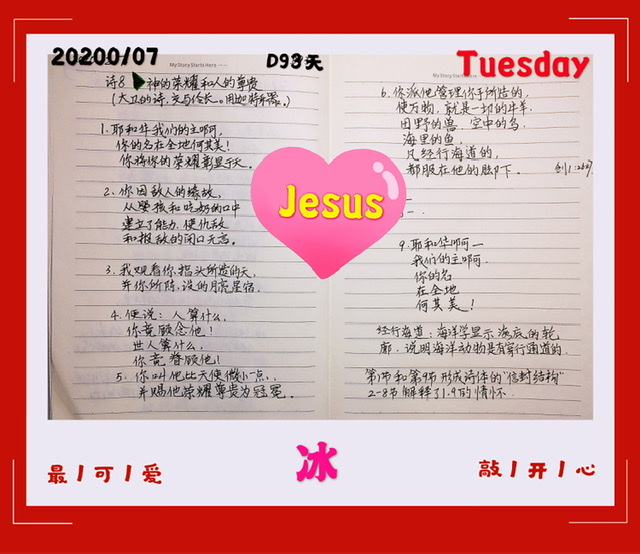 20200/07
D93天
Tuesday
My Story Starts Here
My Story Starts Here
诗8 神的荣耀和人的尊贵
(大卫的诗,交与伶长。用迦特乐器。)
1. 耶和华我们的主啊,
你的名在全地何其美!
你将你的荣耀彰显于天。
2. 你因敌人的缘故,
从婴孩和吃奶的口中
建立了能力,使仇敌
和报敌的闭口无言。
3. 我观看你指头所造的天,
并你所陈设的月亮星宿,
4. 便说:人算什么,
你竟顾念他!
世人算什么,
你竟眷顾他!
5. 你叫他比天使微小一点,
并赐他荣耀尊贵为冠冕。
Jesus
6. 你派他管理你手所造的,
使万物,就是一切的牛羊.
田野的兽 空中的鸟.
海里的鱼,
凡经行海道的,
都服在他的脚下。
9. 耶和华啊一
我们的主啊.
你的名
在全地
何其美!
经行海道:海洋学显示海底的轮
廓.说明海洋动物是有穿行通道的.
第1节和第9节形成诗体的"信封结构"
2-8节解释了1.9的情怀.
最 / 可 / 爱
冰
敲 / 开 / 心